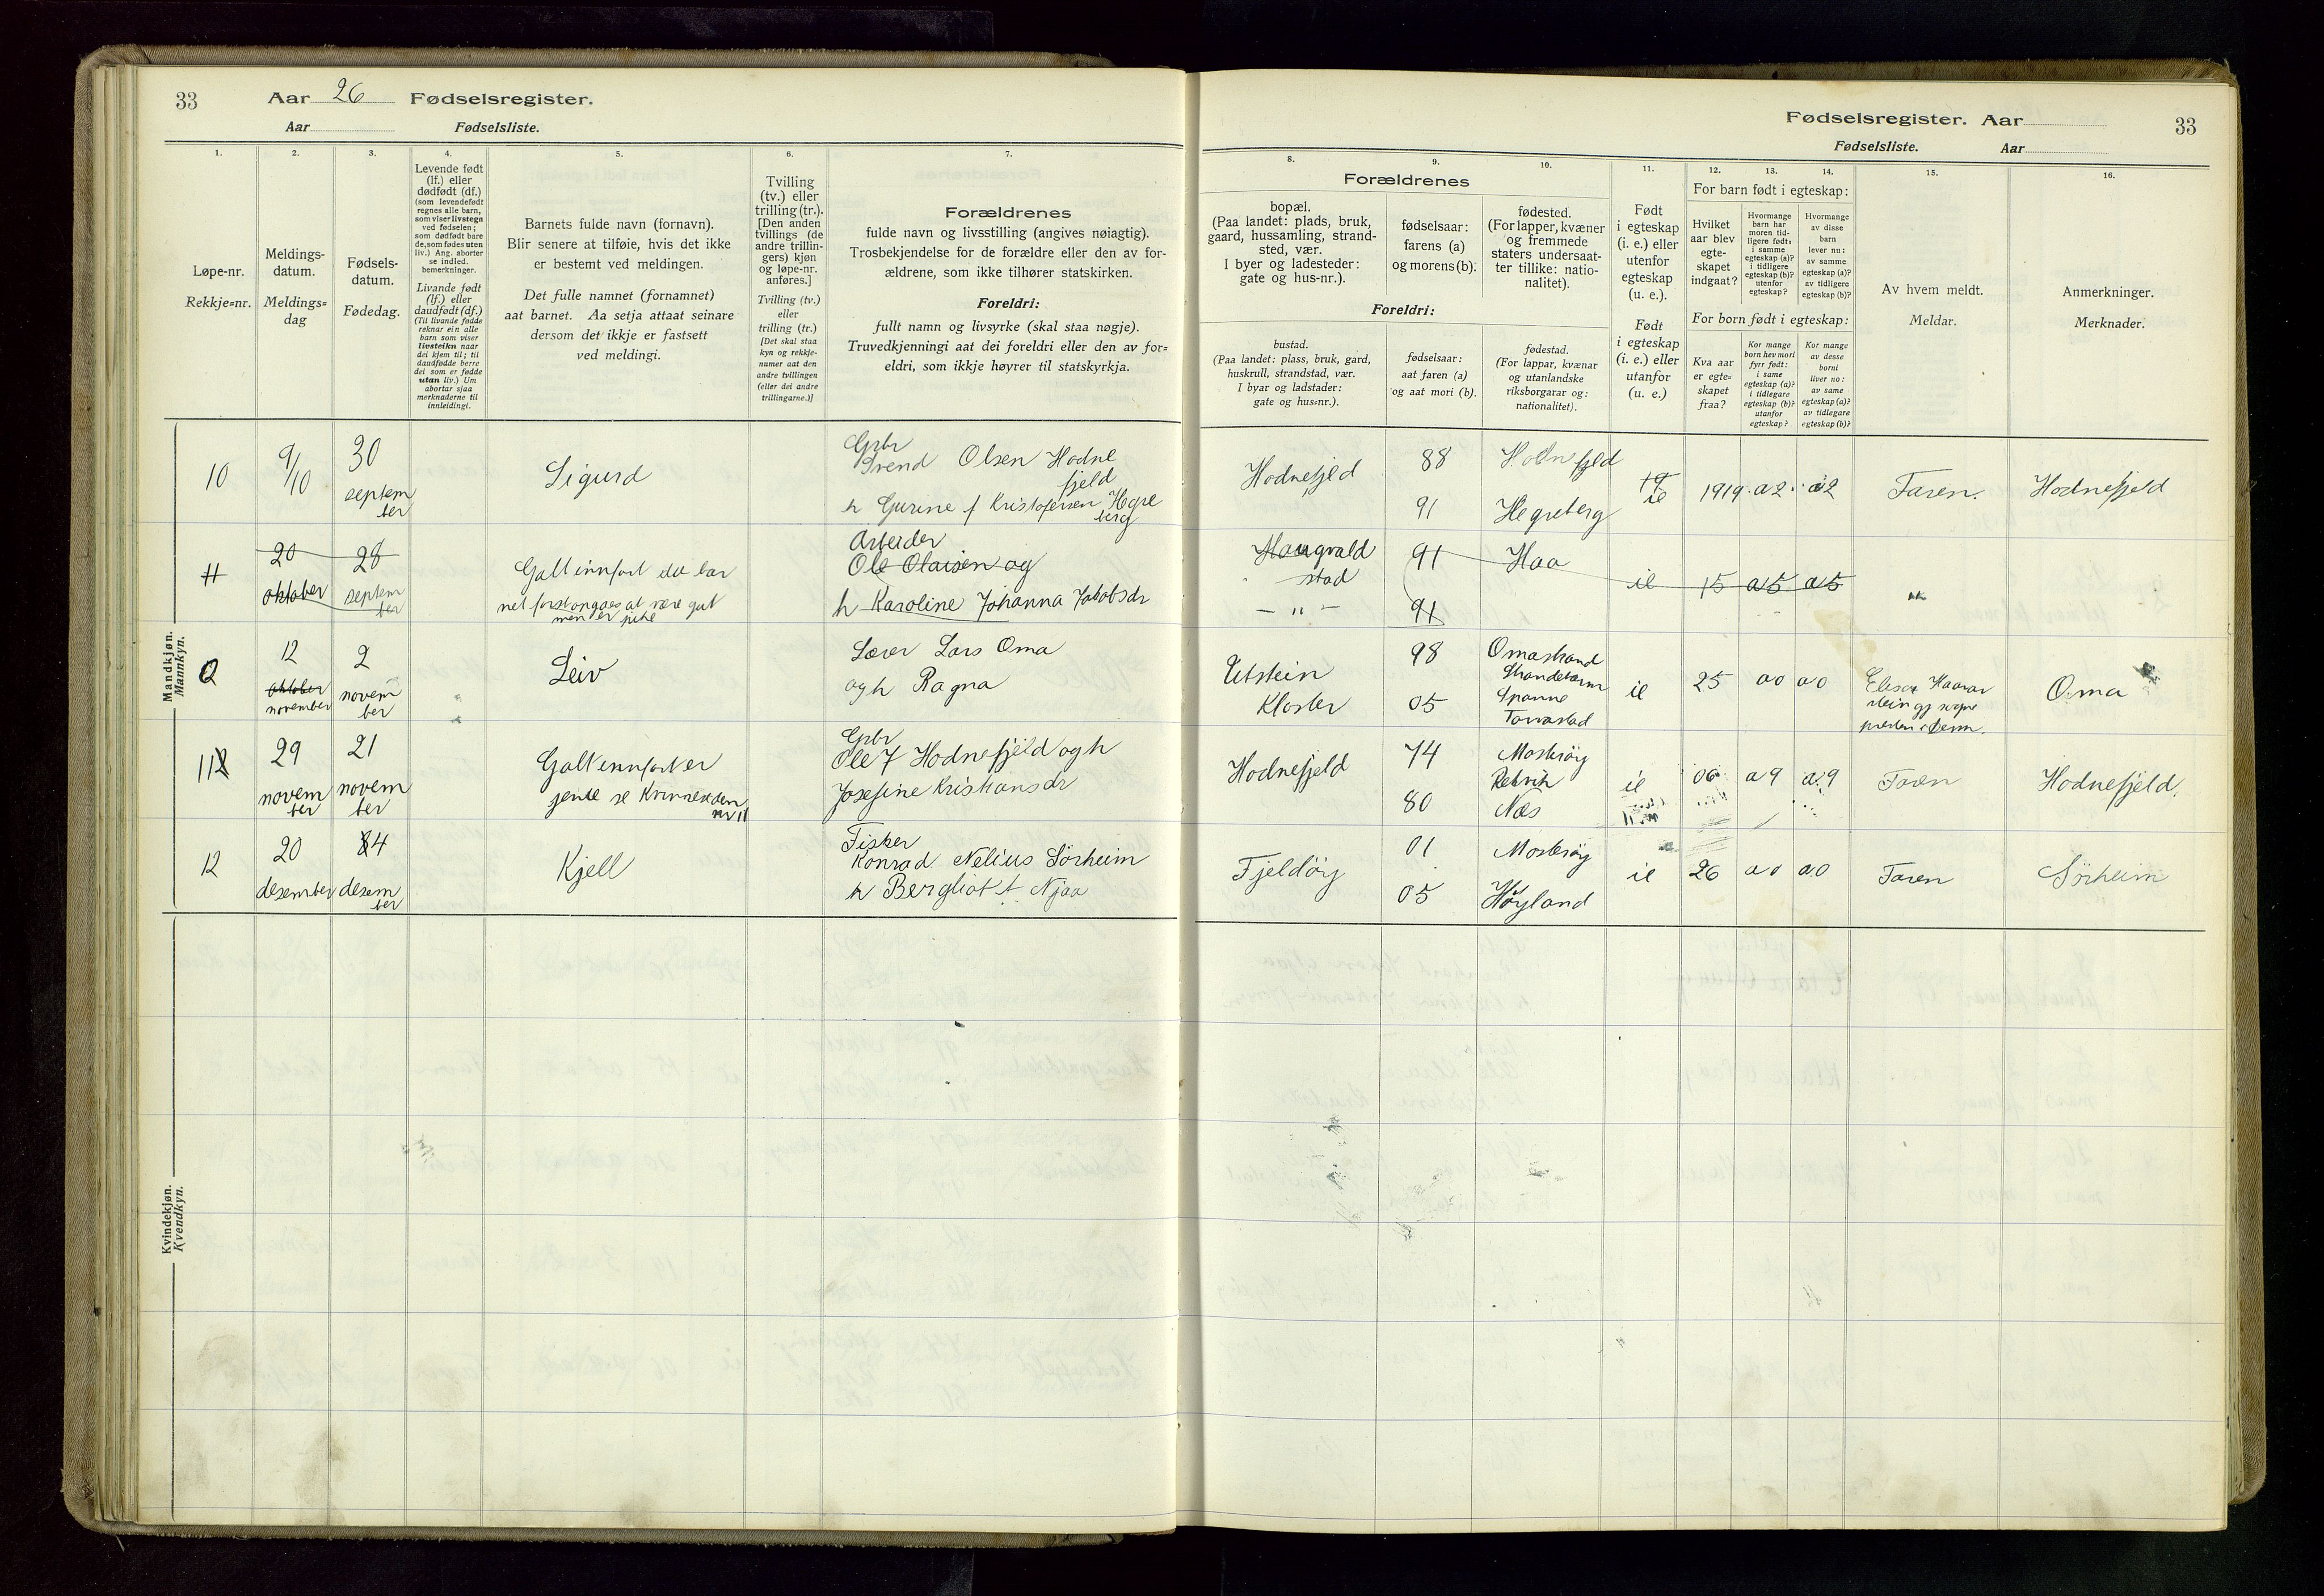 33 Aar 26 Fødselsregister.
Aar Fødselsliste.
1. 2. 3. 4. 5. 6. 7.
Løpe-nr.
Rekkje=nr.
Meldings-
datum.
Meldings=
dag
Fødsels-
datum.
Fødedag.
Levende født
(lf.) eller
dødfødt (df.)
(som levendefødt
regnes alle barn,
som viser livstegn
ved fødselen;
som dødfødt bare
de, som fødes uten
liv.) Ang. aborter
se indled.
bemerkninger.
Livande født
(lf.) eller
daudfødt (df.)
(Til livande fødde
reknar ein alle
barn som viser
livsteikn naar
dei kjem til; til
daudfødde berre
dei som er fødde
utan liv.) Um
abortar sjaa
merknaderne til
innleidingi.
Barnets fulde navn (fornavn).
Blir senere at tilføie, hvis det ikke
er bestemt ved meldingen.
Det fulle namnet (fornamnet)
aat barnet. Aa setja attaat seinare
dersom det ikkje er fastsett
ved meldingi.
Tvilling
(tv.) eller
trilling (tr.).
[Den anden
tvillings (de
andre trillin-
gers) kjøn
og løpe-nr.
anføres.]
Tvilling (tv.)
eller
trilling (tr.)
[Det skal staa
kyn og rekkje-
numer aat den
andre tvillingen
(eller dei andre
trillingarne.)]
Forældrenes
fulde navn og livsstilling (angives nøiagtig).
Trosbekjendelse for de forældre eller den av for-
ældrene, som ikke tilhører statskirken.
Foreldri:
fullt namn og livsyrke (skal staa nøgje).
Truvedkjenningi aat dei foreldri eller den av for=
eldri, som ikkje høyrer til statskyrkja.
Mandkjøn.
Mannkyn.
10
9/10
30
septem
ber
Sigurd
Grbr
Svend Olsen Hodne
fjeld
h Gurine f Kristofersen Hegre
berg
11
20
oktober
28
septem
ber
Galt innført da bar
net forst ongaes at være gut
men er pike
Arbeider
Ole Olaisen og
h Karoline Johanna Jakobsdr
12
oktober
november
2
novem
ber
Leiv
Lærer Lars Oma
og h Ragna
112
29
novem
ber
21
novem
ber
Galt innført er
jente se Kvinnekjøn
nr 11
Grbr
Ole T Hodnefjeld og h
Josefine Kristiansdr
12
20
desember
24
desem
ber
Kjell
Fisker
Konrad Nelius Sörheim
h Bergliot f. Njaa
Kvindekjøn.
Kvendkyn.
Fødselsregister. Aar 33
Fødselsliste. Aar
8. 9. 10. 11. 12. 13. 14. 15. 16.
Forældrenes
bopæl.
(Paa landet: plads, bruk,
gaard, hussamling, strand-
sted, vær.
I byer og ladesteder:
gate og hus-nr.).
fødselsaar:
farens (a)
og morens (b).
fødested.
(For lapper, kvæner
og fremmede
staters undersaat-
ter tillike: natio-
nalitet).
Foreldri:
bustad.
(Paa landet: plass, bruk, gard,
huskrull, strandstad, vær.
I byar og ladstader:
gate og hus=nr.).
fødselsaar:
aat faren (a)
og aat mori (b).
fødestad.
(For lappar, kvænar
og utanlandske
riksborgarar og:
nationalitet).
Født
i egteskap
(i. e.) eller
utenfor
egteskap
(u. e.).
Født
i egteskap
(i. e.) eller
utanfor
(u. e.)
For barn født i egteskap:
Hvilket
aar blev
egte-
skapet
indgaat?
Hvormange
barn har
moren tid-
ligere født:
i samme
egteskap (a)?
i tidligere
egteskap (b)?
utenfor
egteskap?
Hvormange
av disse
barn
lever nu:
av samme
egteskap (a)?
av tidligere
egteskap (b)?
For born født i egteskap:
Kva aar
er egte=
skapet
fraa?
Kor mange
born hev mori
fyrr født:
i same
egteskap (a)?
i tidlegare
egteskap (b)?
utanfor
egteskap?
Kor mange
av desse
borni
liver no:
av same
egteskap (a)?
av tidlegare
egteskap (b)?
Av hvem meldt.
Meldar.
Anmerkninger.
Merknader.
Hodnefjeld
88
91
Hodnefjeld
Hegreberg
19
ie
1919 a2 a2
Faren.
Hodnefjeld
Haugvald
stad
— " —
91
91
Haa
ie
15 a5 a5
"
Utstein
Kloster
98
05
Omastrand
Strandebarm
Spanne
Torvastad
ie
25 a0 a0
Oma
Hodnefjeld
74
80
Mosterøy
Rekvik
Næs
ie
06 a9 a9
Faren
Hodnefjeld.
Fjeldöy
01
05
Mosterøy
Høyland
ie
26 a0 a0
Faren
Sörheim